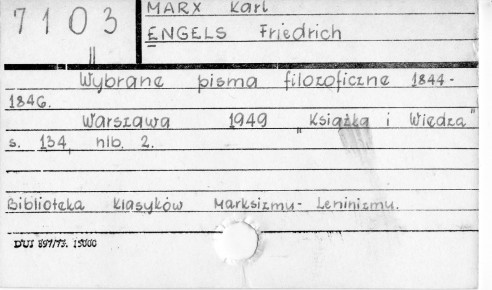 7103
MARX Karl
ENGELS Friedrich
Wybrane pisma filozoficzne 1844-
1846.
Warszawa 1949 „Książka i Wiedza"
s. 134, nlb. 2.
Biblioteka Klasyków Marksizmu-Leninizmu.
DUJ 897/73. 15000